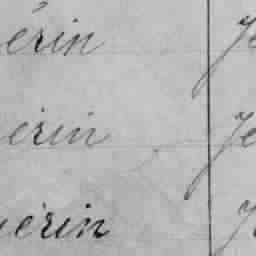 érin Je
érin Je
uérin J